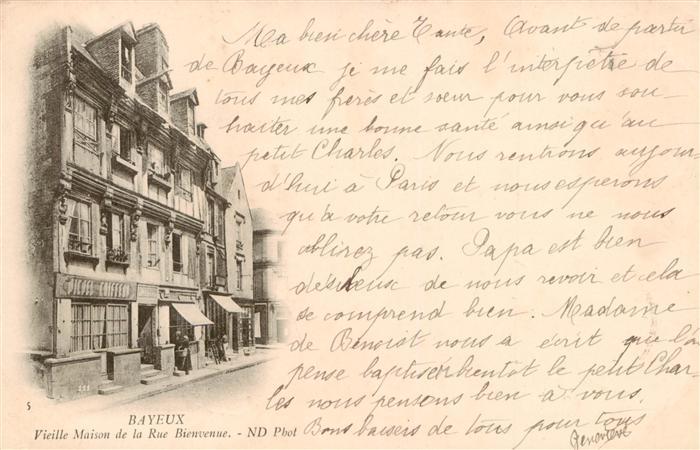 Ma bien chère Tante, Avant de partir
de Bayeux je me fais l'interprète de
tous mes frères et sœur pour vous sou-
haiter une bonne santé ainsi qu'au
petit Charles. Nous rentrons aujour-
d'hui à Paris et nous esperons
qu'à votre retour vous ne nous
oblirez pas. Papa est bien
désireux de nous revoir et cela
se comprend bien. Madame
de Benoist nous a écrit que l'on
pense baptiser bientôt le petit Char
les nous pensons bien à vous.
Bons baisers de tous pour tous
Geneviève
5
BAYEUX
Vieille Maison de la Rue Bienvenue. - ND Phot